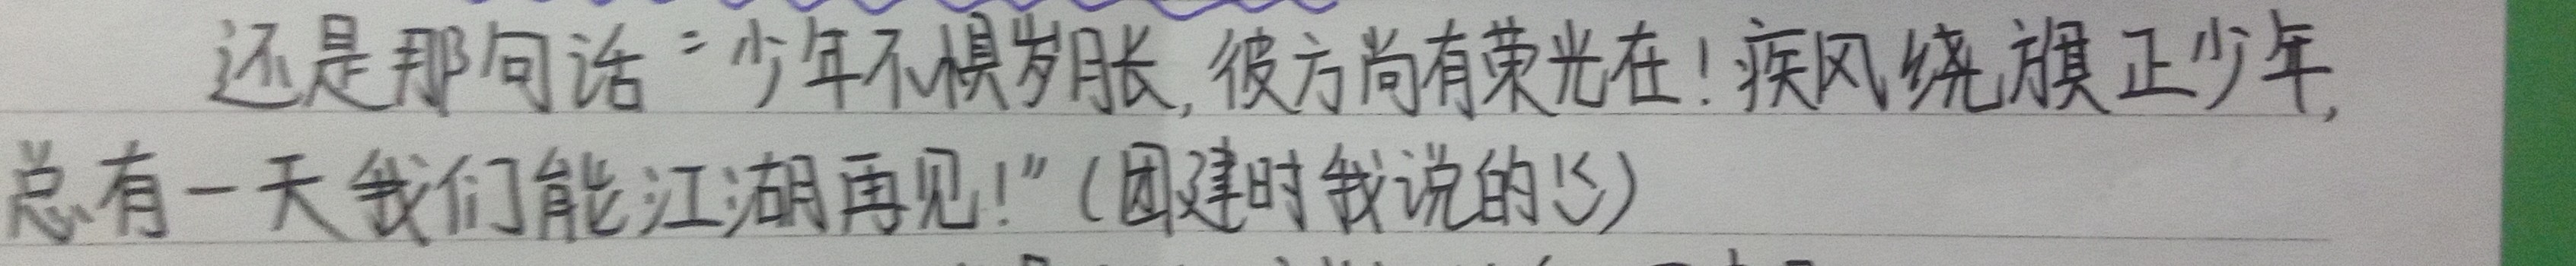 还是那句话“少年不惧岁月长,彼方尚有荣光在!疾风绕旗正少年,
总有一天我们能江湖再见!”(团建时我说的)